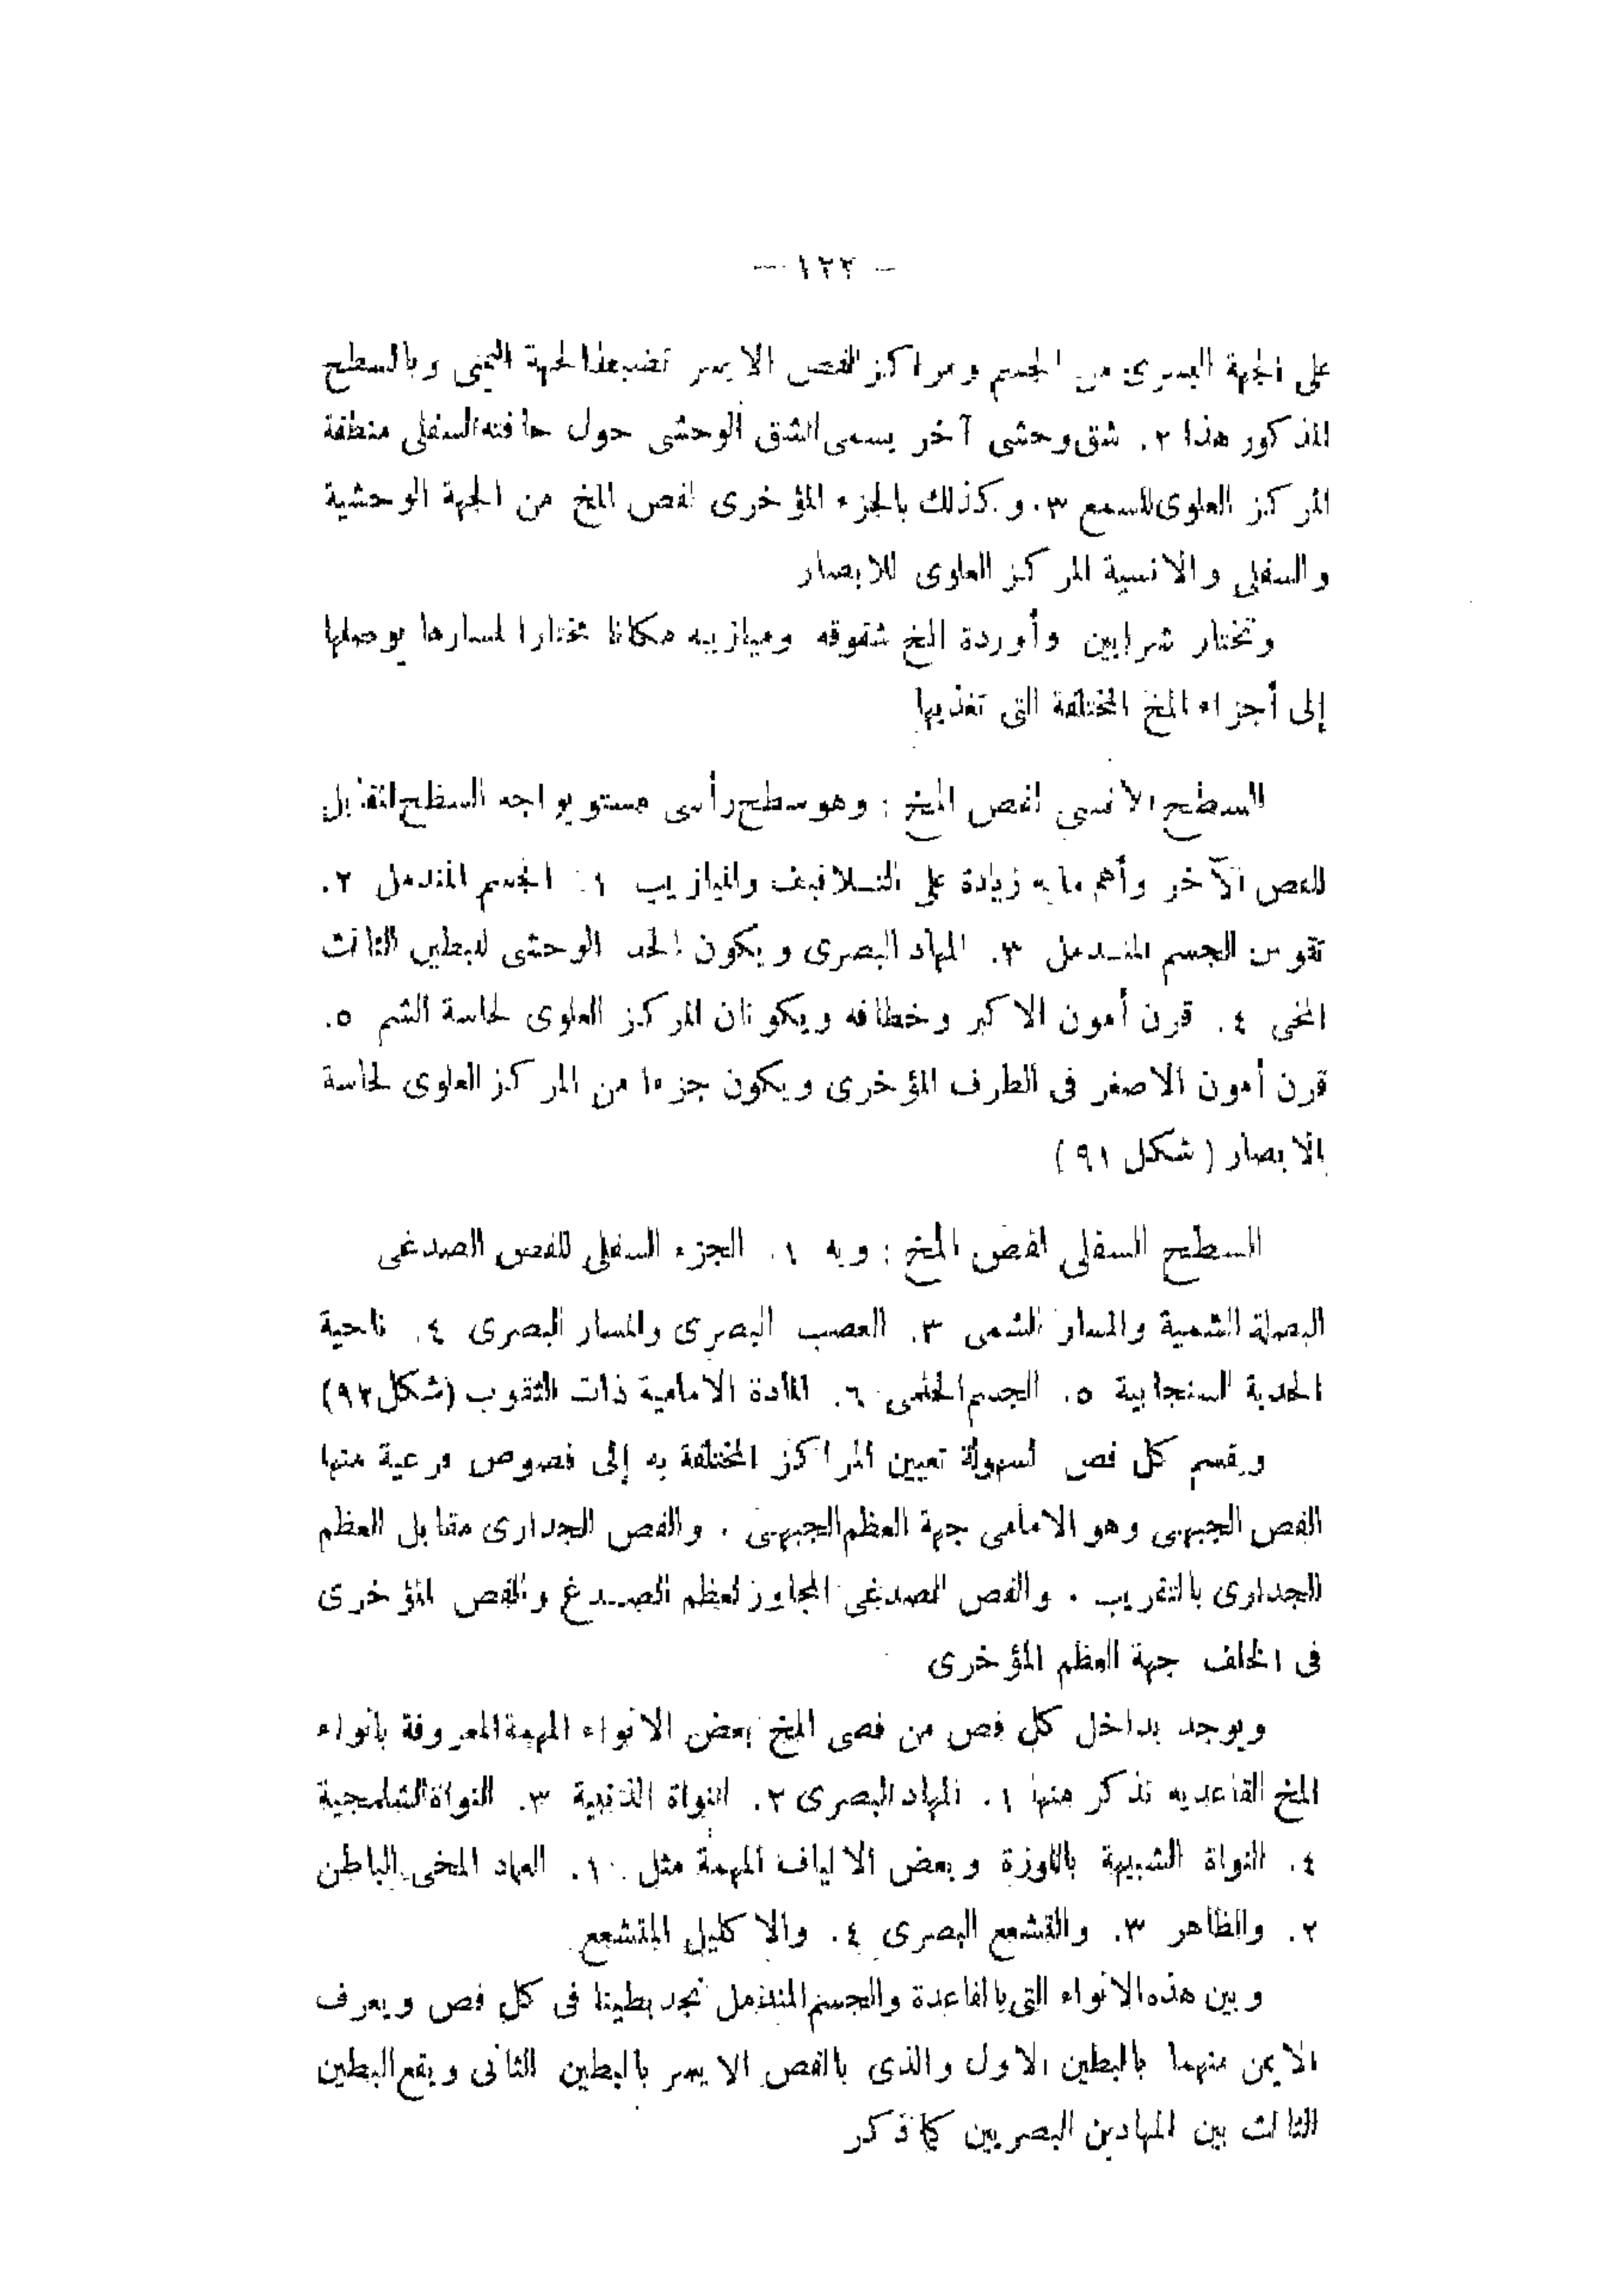 — ١٢٢ —
على الجهة اليسرى من الجسم ومراكز الفص الايسر تضبط الجهة اليمنى وبالسطح
المذكور هذا ٢. شق وحشى آخر يسمى الشق الوحشى حول حافته السفلى منطقة
المركز العلوى للسمع ٣. وكذلك بالجزء المؤخرى لفص المخ من الجهة الوحشية
والسفلى والانسية المركز العلوى للابصار
وتختار شرايين وأوردة المخ شقوقه وميازيبه مكانا مختارا لمسارها يوصلها
إلى أجزاء المخ المختلفة التى تغذيها
السطح الانسى لفص المخ : وهو سطح رأسى مستو يواجه السطح المقابل
للفص الآخر وأهم مابه زيادة على التلافيف والميازيب ١. الجسم المندمل ٢.
تقوس الجسم المندمل ٣. المهاد البصرى ويكون الحد الوحشى للبطين الثالث
المخى ٤. قرن أمون الاكبر وخطافه ويكونان المركز العلوى لحاسة الشم ٥.
قرن أمون الاصغر فى الطرف المؤخرى ويكون جزءا من المركز العلوى لحاسة
الابصار ( شكل ٩١ )
السطح السفلى لفص المخ : وبه ١. الجزء السفلى للفص الصدغى
البصلة الشمية والمسار الشمى ٣. العصب البصرى والمسار البصرى ٤. ناحية
الحدبة السنجابية ٥. الجسم الحلمى ٦. المادة الامامية ذات الثقوب (شكل ٩٢)
ويقسم كل فص لسهولة تعيين المراكز المختلفة به إلى فصوص فرعية منها
الفص الجبهى وهو الامامى جهة العظم الجبهى . والفص الجدارى مقابل العظم
الجدارى بالتقريب . والفص الصدغى المجاور لعظم الصدغ والفص المؤخرى
فى الخلف جهة العظم المؤخرى
ويوجد بداخل كل فص من فصى المخ بعض الانواء المهمة المعروفة بانواء
المخ القاعديه نذكر منها ١. المهاد البصرى ٢. النواة الذنبية ٣. النواة الشلجمية
٤. النواة الشبيهة باللوزة وبعض الالياف المهمة مثل ١. العماد المخى الباطن
٢. والظاهر ٣. والتشعع البصرى ٤. والاكليل المتشعع
وبين هذه الانواء التى بالقاعدة والجسم المندمل نجد بطينا فى كل فص ويعرف
الايمن منهما بالبطين الاول والذى بالفص الايسر بالبطين الثانى ويقع البطين
الثالث بين المهادين البصريين كما ذكر